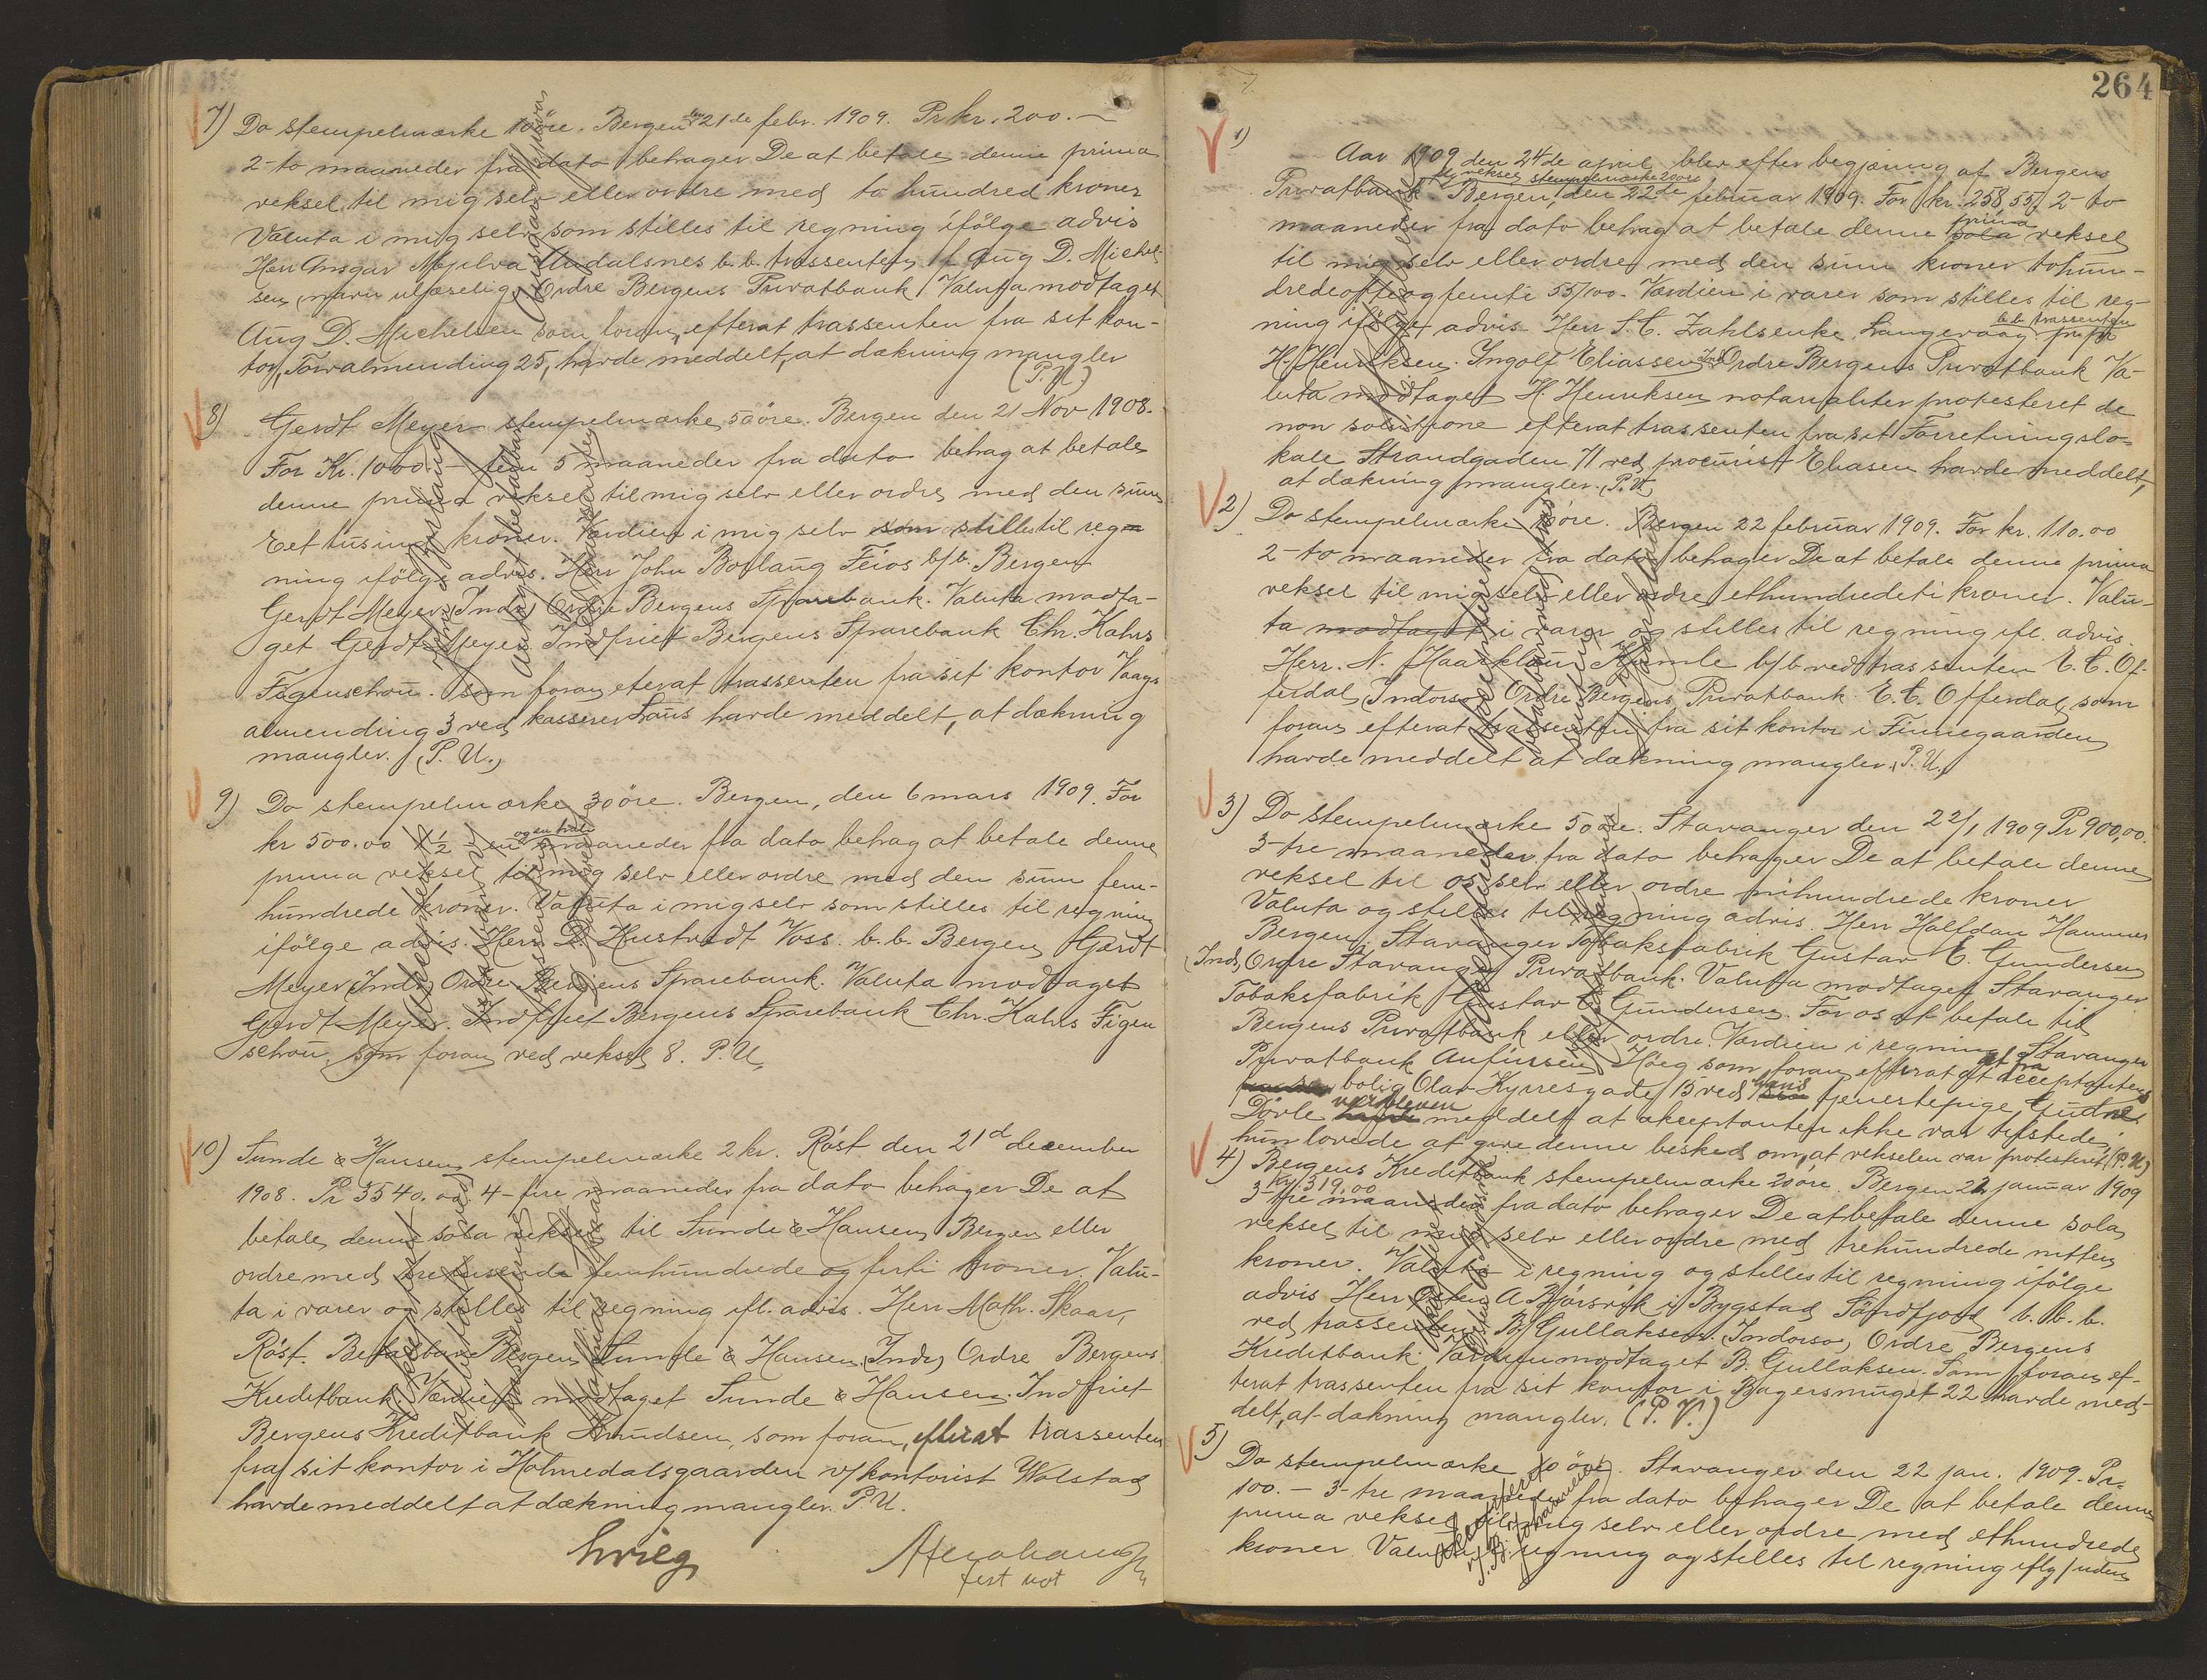 7) Do stempelmærke 10 öre. Bergen den 21de febr. 1909. Pr kr. 200.—
2-to maaneder fra dato behager De at betale denne prima
veksel til mig selv eller ordre med to hundred kroner
Valuta i mig selv som stilles til regning ifölge advis
Herr Ansgar Mjelva Andalsnes b.b. trassenten Aug D. Michel-
sen (navn ulæselig) Ordre Bergens Privatbank Valuta modtaget
Aug D. Michelsen som foran, efterat trassenten fra sit kon-
tor, Torvalmending 25, havde meddelt, at dækning mangler
(P. U.)
Ansgar Mjelva
8) Gerdt Meyer stempelmærke 50 öre. Bergen den 21 Nov 1908.
For Kr. 1000.— fem 5 maaneder fra dato behag at betale
denne prima veksel til mig selv eller ordre med den sum
Eet tusind kroner. Værdien i mig selv som stilles til reg-
ning ifölge advis. Herr John Borlaug Feios b/b. Bergen
Gerdt Meyer (Inds) Ordre Bergens Sparebank. Valuta modta-
get Gerdt Meyer Indfriet Bergens Sparebank Chr. Kahrs
Figenschou. Som foran, eterat trassenten fra sit kontor Vaags
almending 3 ved kasserer Haus havde meddelt, at dækning
mangler. (P. U.)
John Borlaug
Antaget betalbar
9) Do stempelmærke 30 öre. Bergen, den 6 mars 1909. For
kr 500.00 1 1/2 - en og en halv maaneder fra dato behag at betale denne
prima veksel til mig selv eller ordre med den sum fem-
hundrede kroner. Valuta i mig selv som stilles til regning
ifölge advis. Herr D. Hustvedt Voss. b.b. Bergen Gerdt
Meyer (Inds) Ordre Bergens Sparebank. Valuta modtaget
Gerdt Meyer. Indfriet Bergens Sparebank Chr. Kahrs Figen
schou, som foran ved veksel 8. P. U.
10) Sunde & Hansen stempelmærke 2 kr. Röst den 21d december
1908. Pr 3540.00. 4-fire maaneder fra dato behager De at
betale denne sola veksel til Sunde & Hansen, Bergen eller
ordre med tretusende femhundrede og firti kroner. Valu-
ta i varer og stilles til regning ifl. advis. Herr Math. Skaar,
Röst. Betalbar Bergen Sunde & Hansen (Inds) Ordre Bergens
Kreditbank. Værdien modtaget Sunde & Hansen. Indfriet
Bergens Kreditbank Knudsen, som foran, efterat trassenten
fra sit kontor i Holmedalsgaarden v/ kontorist Wolstad
havde meddelt at dækning mangler. P U.
264
1) Aar 1909 den 24de april blev efter begjæring af Bergens
Privatbank ny veksel stempelmærke 20 öre Bergen, den 22de februar 1909. For kr. 258.55. 2-to
maaneder fra dato behag at betale denne sola prima veksel
til mig selv eller ordre med den sum kroner tohun-
dredeotteogfemti 55/100. Værdien i varer som stilles til reg-
ning ifölge advis Herr S. C. Zahlsenke, Langevaag b.b. trassenten pr. pr.
H. Henriksen. Ingolf Eliassen Inds Ordre Bergens Privatbank Va-
luta modtaget H. Henriksen notarialiter protesteret de
non solutione efterat trassenten fra sit Forretningslo-
kale Strandgaden 71 ved procurist Eliasen havde meddelt,
at dækning mangler. (P. U.)
2) Do stempelmærke 10 öre. Bergen 22 februar 1909. For kr. 110.00
2-to maaneder fra dato behager De at betale denne prima
veksel til mig selv eller ordre ethundredeti kroner. Valu-
ta modtaget i varer og stilles til regning ifl. advis.
Herr. N. Haarklau Hamle b/b ved trassenten E. C. Of-
ferdal, (Indorso) Ordre Bergens Privatbank E. C. Offerdal, som
foran efterat trassenten fra sit kontor i Finnegaarden
havde meddelt at dækning mangler. P. U.)
3) Do stempelmærke 50 öre. Stavanger den 22/1 1909 Pr 900,00.
3-tre maaneder fra dato behager De at betale denne
veksel til os selv eller ordre nihundrede kroner
Valuta og stilles til regning advis. Herr Halfdan Hammer
Bergen, Stavanger Tobaksfabrik Gustav E. Gundersen
(Inds, Ordre Stavanger Privatbank. Valuta modtaget Stavanger
Tobaksfabrik Gustav E Gundersen. For os at betale til
Bergens Privatbank eller ordre. Værdien i regning Stavanger
Privatbank Anfinsen Höeg som foran efterat at fra acceptantens
bolig Olav Kyrresgade 15 ved hans tjenestepige Gudne
Dövle var bleven meddelt at akceptanten ikke var tilstede;
hun lovede at give denne besked om, at vekselen var protesteret. (P. U.)
4) Bergens Kreditbank stempelmærke 20 öre. Bergen 22 januar 1909
Kr 319.00
3-tre maaneder fra dato behager De at betale denne sola
veksel til mig selv eller ordre med trehundrede nitten
kroner. Valuta i regning og stilles til regning ifölge
advis Herr Osten A Bjorsvik i Bygstad Söndfjord b. b. b.
ved trassenten B. Gullaksen. (Indorso) Ordre Bergens
Kreditbank. Værdien modtaget B. Gullaksen. Som foran ef-
terat trassenten fra sit kontor i Bagersmuget 22 havde med-
delt, at dækning mangler. (P. U.)
5) Do stempelmærke 10 öre. Stavanger den 22 jan. 1909. Pr.
100.— 3-tre maaneder fra dato behager De at betale denne
prima veksel til mig selv eller ordre med ethundrede
kroner. Valuta i regning og stilles til regning iflg/uden